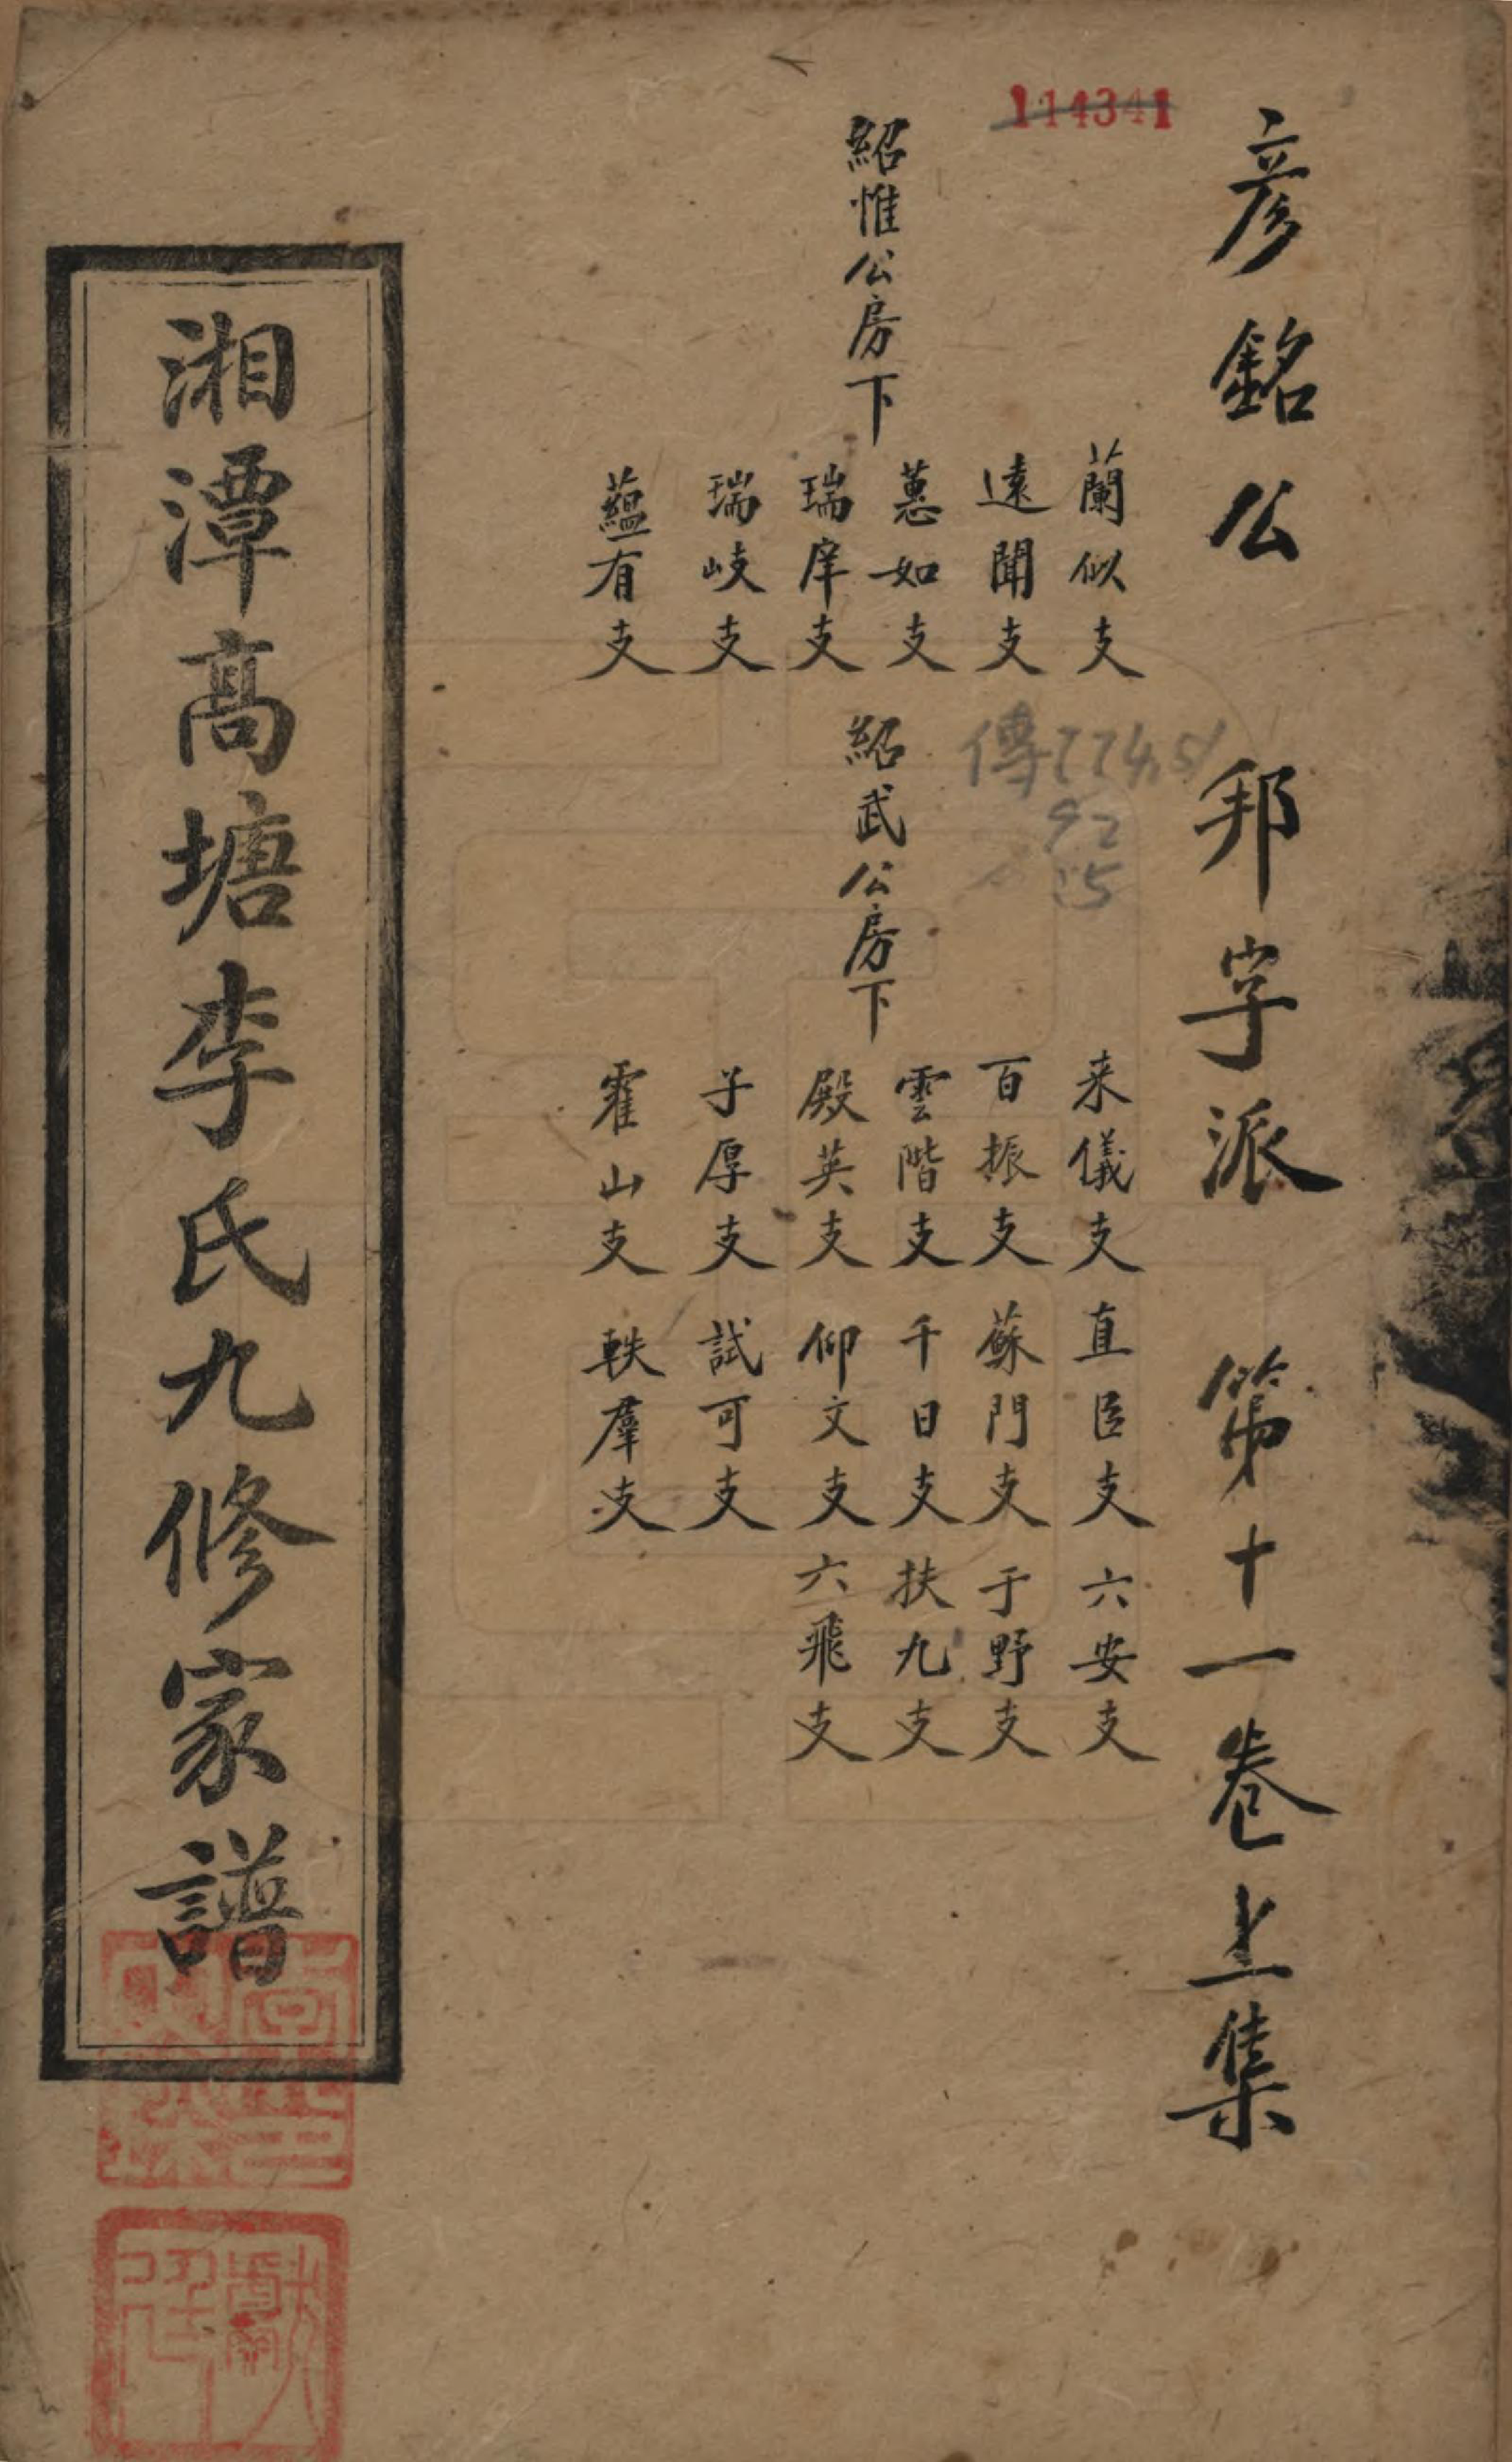 彥銘公 邦字派 第十一卷上集
114341
紹惟公房下
蘭似支
遠聞支
蕙如支
瑞庠支
瑞岐支
蘊有支
傳774.51
92
15
紹武公房下
来儀支 直臣支 六安支
百振支 蘇門支 于野支
雲階支 千日支 扶九支
殿英支 仰文支 六飛支
子厚支 試可支
霍山支 軼羣支
湘潭高塘李氏九修家譜